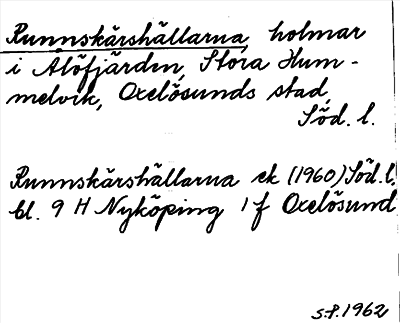 Runnskärshällarna, holmar
i Alöfjärden, Stora Hum-
melvik, Oxelösunds stad,
Söd. l.
Runnskärshällarna ek (1960) Söd. l.
bl. 9 H Nyköping 1 f Oxelösund
S.P. 1962